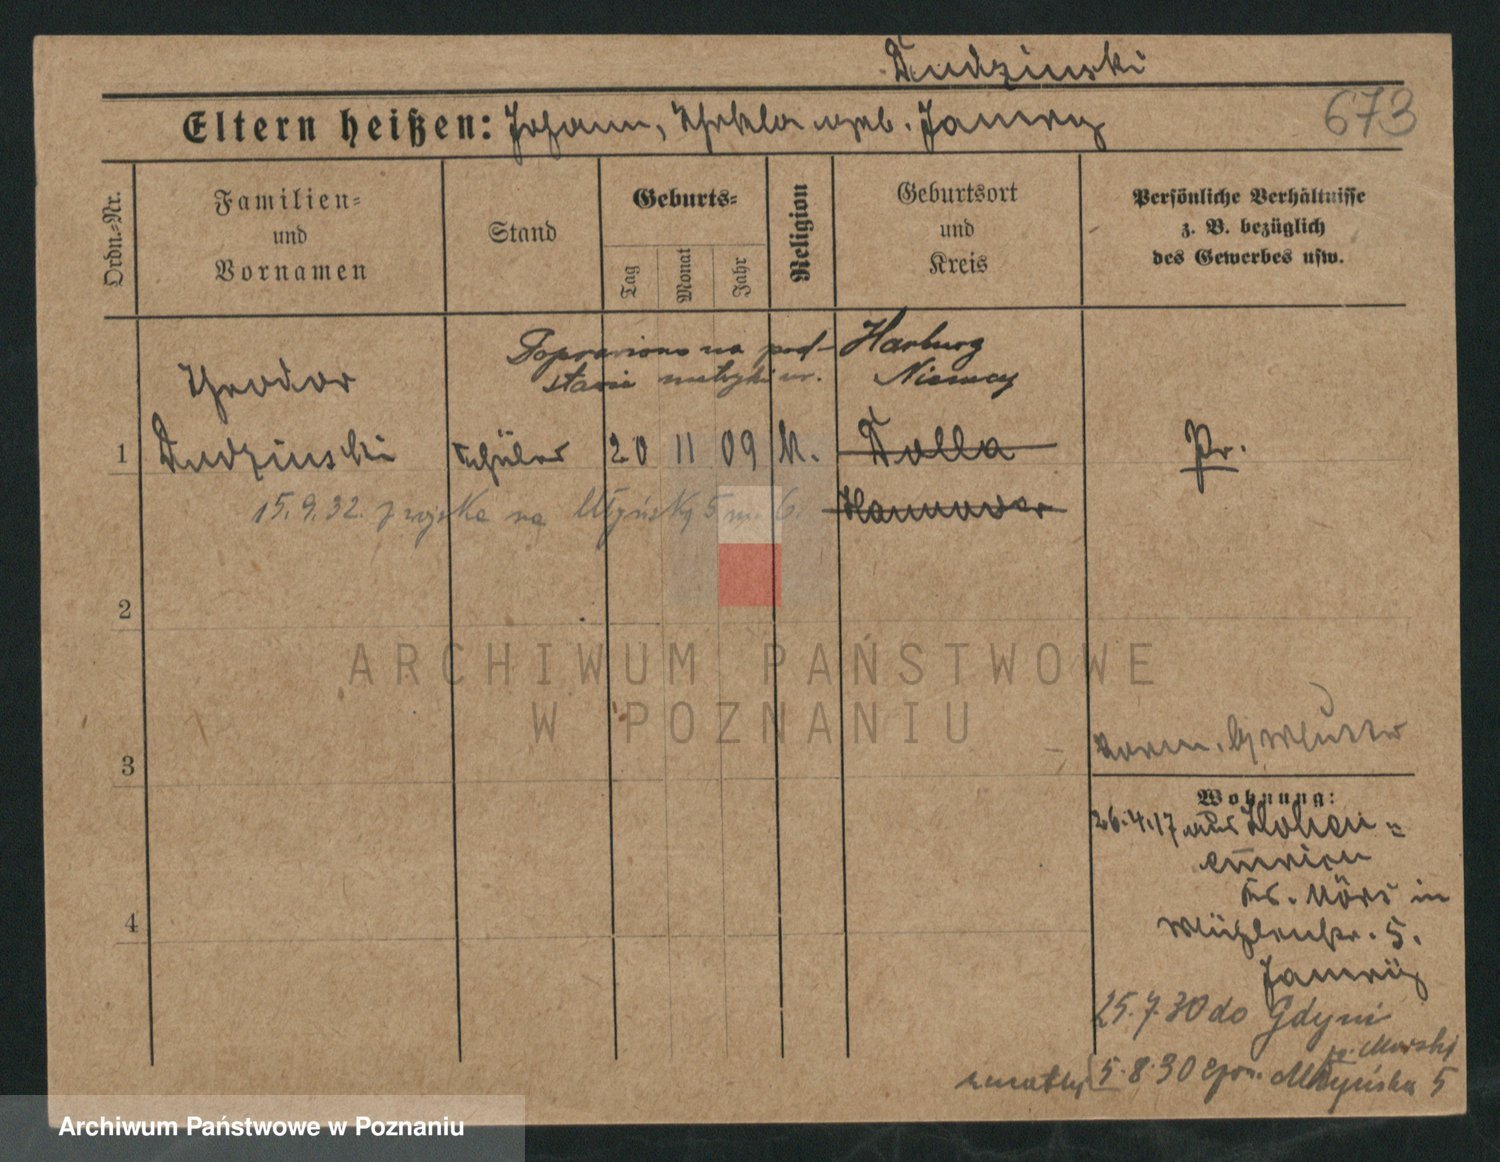 Dudzinski
Eltern heißen: Johann, Thekla geb. Jamrog
673
Ordn.-Nr.
Familien-
und
Vornamen
Stand
Geburts-
Tag
Monat
Jahr
Religion
Geburtsort
und
Kreis
Persönliche Verhältnisse
z. B. bezüglich
des Gewerbes usw.
Poprawiono na pod-
stawie metryki ur.
Harburg
Niemcy
Theodor
1 Dudzinski Schüler 20 11 09 K. Dolla Pr.
Hannover
15.9.32. na Młyńską 5 m. 6.
2
3
4
ARCHIWUM PAŃSTWOWE
W POZNANIU
Wohnung:
26.4.17 aus Hohen-
emrich
Ks. Mörs in
Mühlenstr. 5.
25.7.30 do Gdyni
5.8.30 Młyńska 5
Archiwum Państwowe w Poznaniu